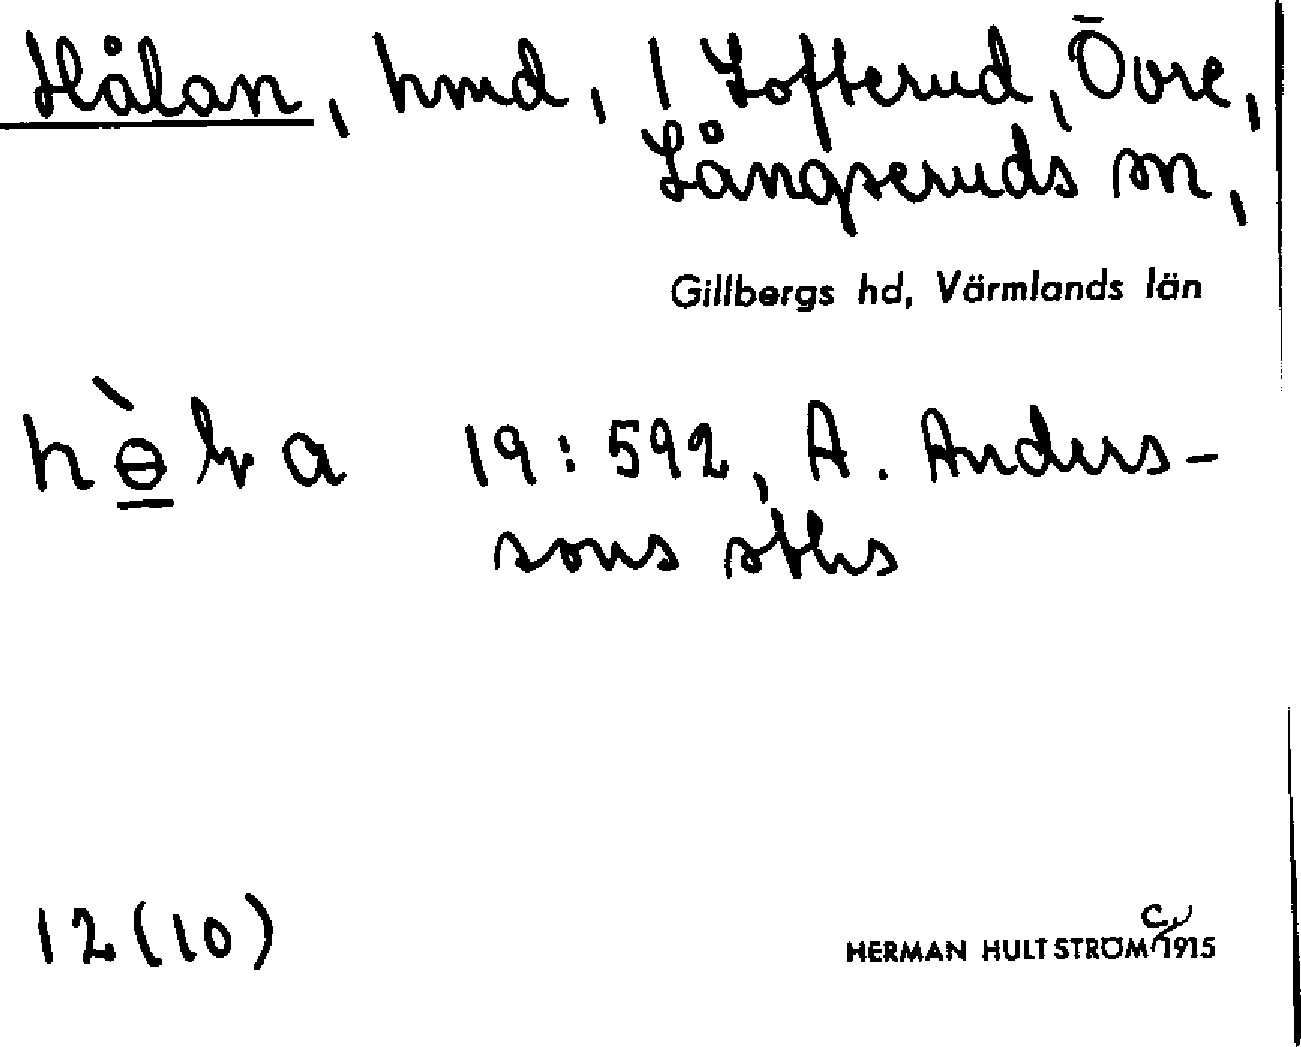 Hålan, hmd, 1 Lofterud, Övre,
Långseruds sn,
Gillbergs hd, Värmlands län
19:592, A. Anders-
sons sths
12(10)
HERMAN HULTSTRÖM c. 1915